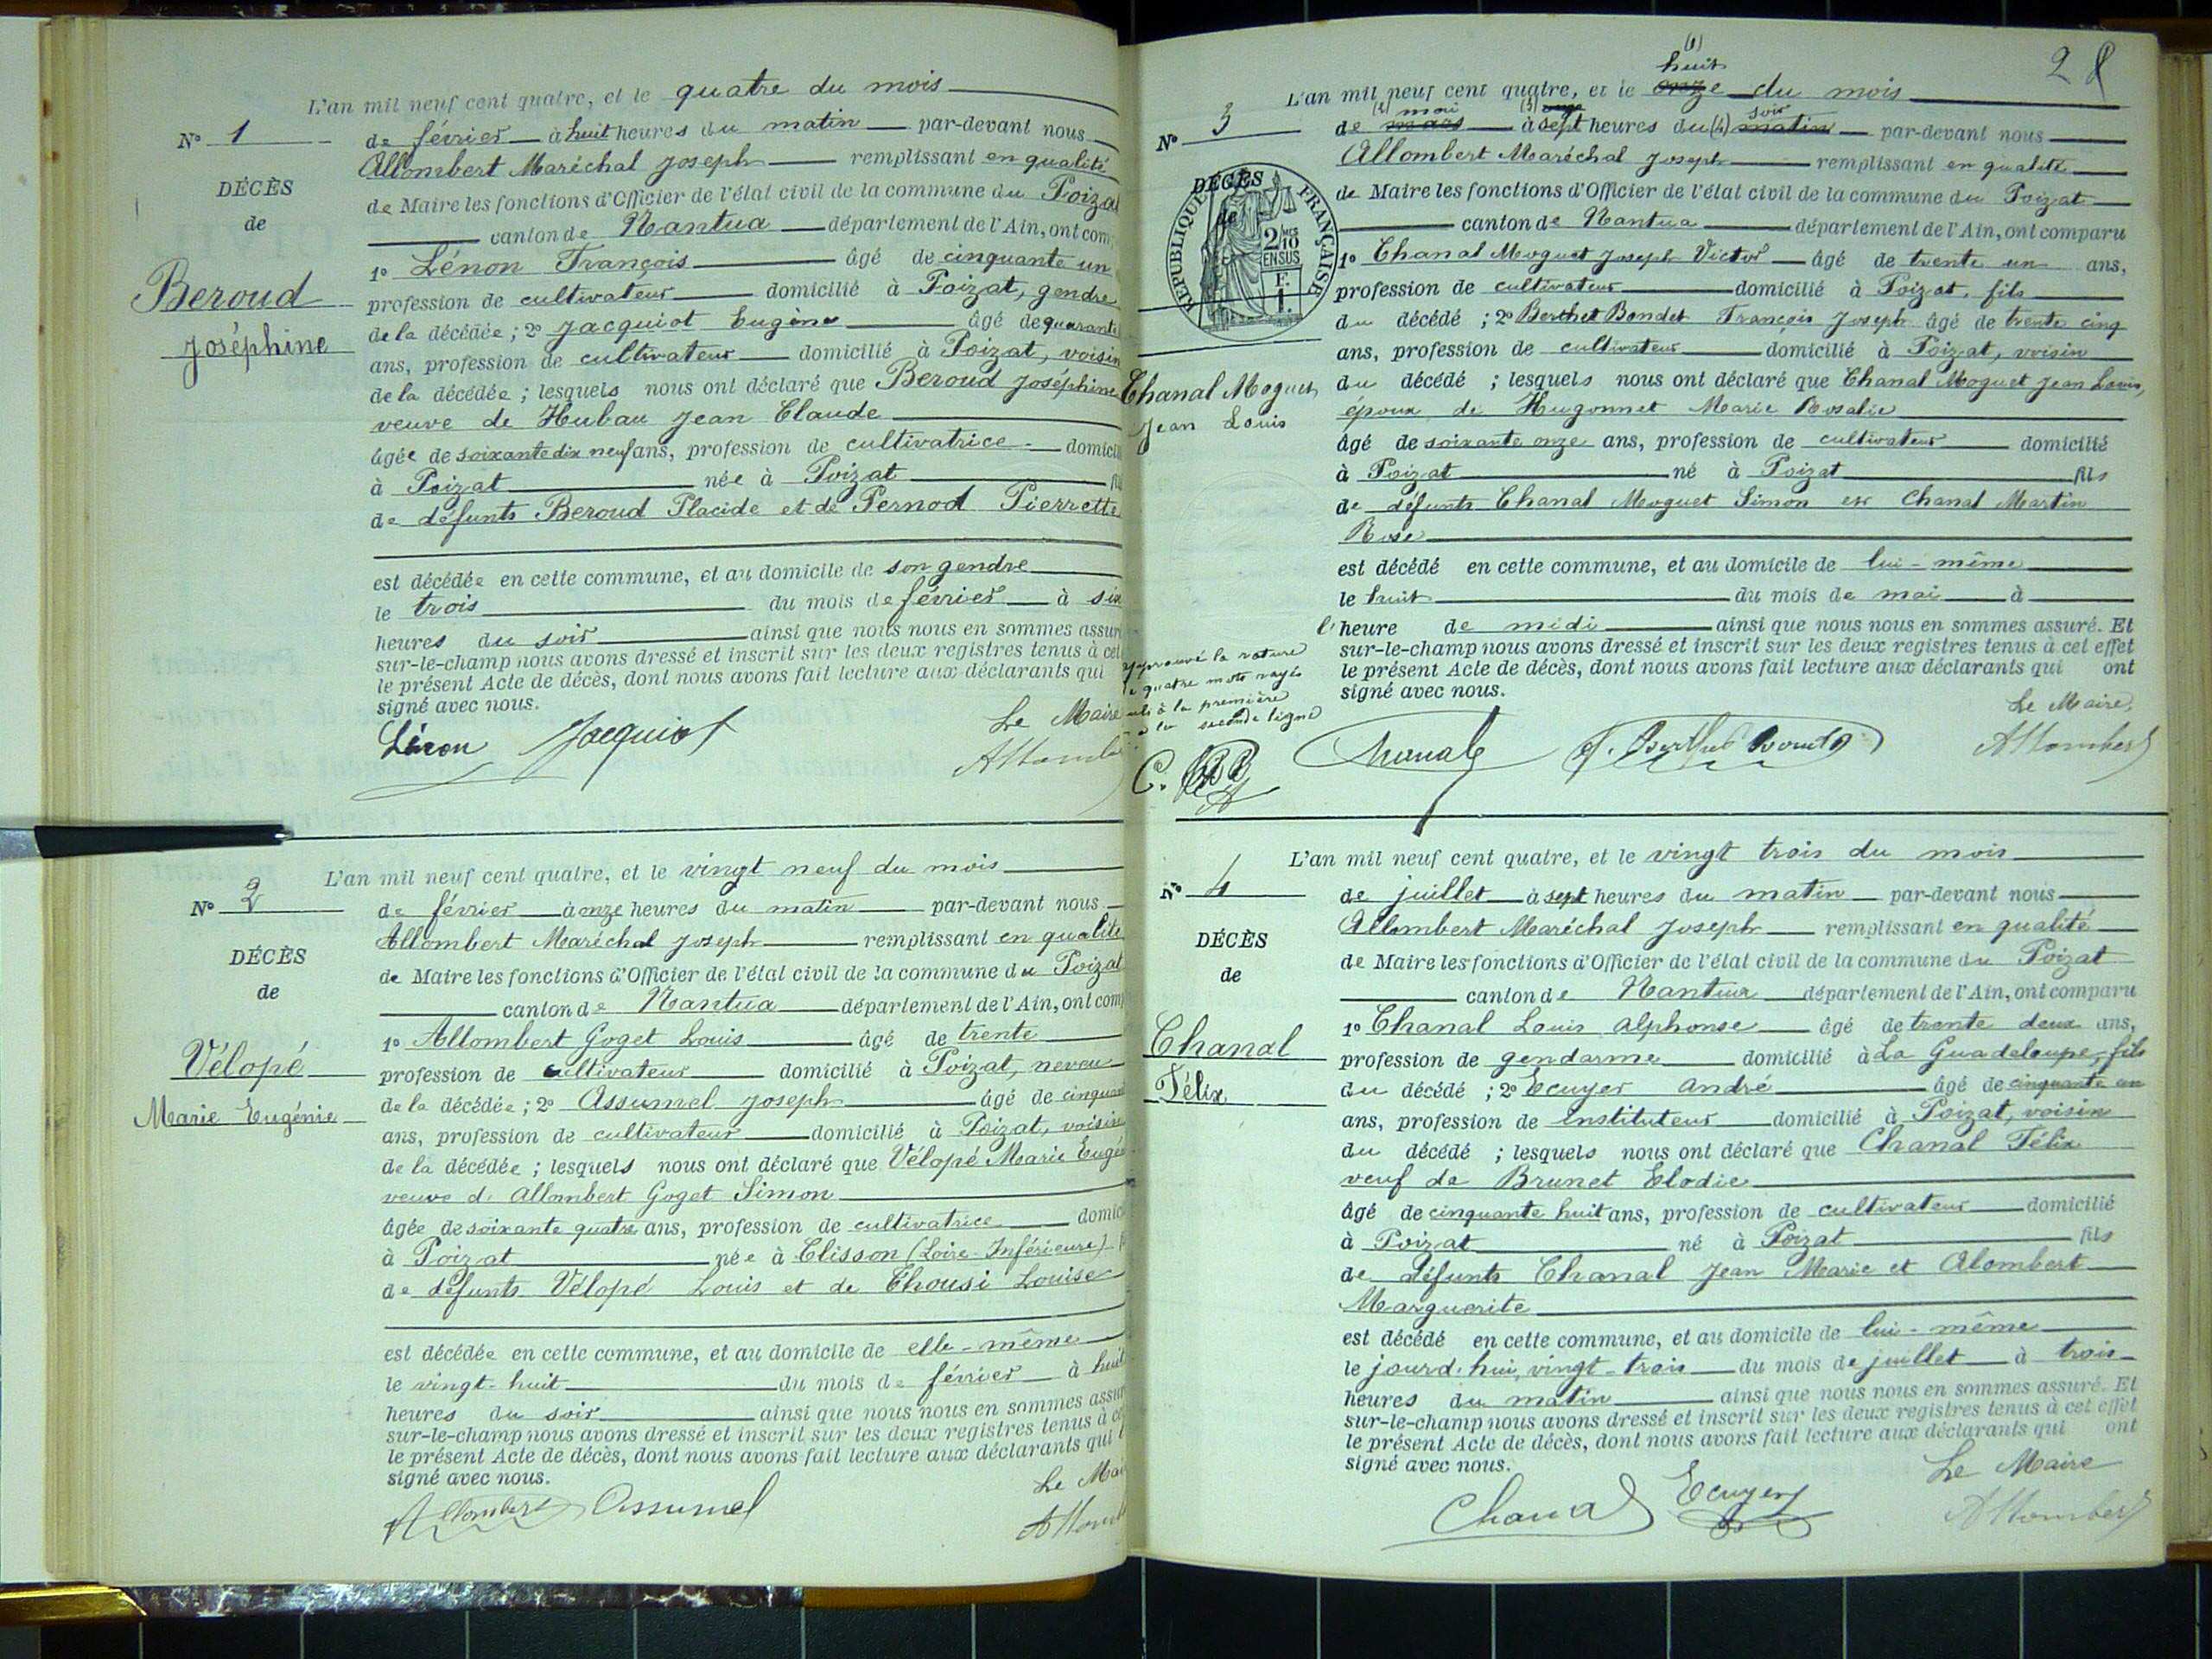 L'an mil neuf cent quatre, et le quatre du mois
N° 1
de février à huit heures du matin par-devant nous
Allombert Maréchal Joseph remplissant en qualité
DÉCÈS
de Maire les fonctions d'Officier de l'état civil de la commune du Poizat
de
canton de Nantua département de l'Ain, ont com
1° Lénon François âgé de cinquante un
Beroud
profession de cultivateur domicilié à Poizat, gendre
Joséphine
de la décédée ; 2° Jacquiot Eugène âgé de quarante
ans, profession de cultivateur domicilié à Poizat, voisin
de la décédée ; lesquels nous ont déclaré que Beroud Joséphine
veuve de Hubau Jean Claude
âgée de soixante dix neuf ans, profession de cultivatrice domicili
à Poizat née à Poizat
de défunts Beroud Placide et de Pernod Pierrette
est décédée en cette commune, et au domicile de son gendre
le trois du mois de février à six
heures du soir ainsi que nous nous en sommes assur
sur-le-champ nous avons dressé et inscrit sur les deux registres tenus à cet
le présent Acte de décès, dont nous avons fait lecture aux déclarants qui
signé avec nous.
Le Maire
Lénon Jacquiot Allombe
L'an mil neuf cent quatre, et le vingt neuf du mois
N° 2
de février à onze heures du matin par-devant nous
Allombert Maréchal Joseph remplissant en qualité
DÉCÈS
de Maire les fonctions d'Officier de l'état civil de la commune du Poizat
de
canton de Nantua département de l'Ain, ont com
1° Allombert Goget Louis âgé de trente
Vélopé
profession de cultivateur domicilié à Poizat, neveu
Marie Eugénie
de la décédée ; 2° Assumel Joseph âgé de cinquan
ans, profession de cultivateur domicilié à Poizat, voisin
de la décédée ; lesquels nous ont déclaré que Vélopé Marie Eugé
veuve d. Allombert Goget Simon
âgée de soixante quatre ans, profession de cultivatrice domic
à Poizat née à Clisson (Loire-Inférieure)
de défunts Vélopé Louis et de Thousi Louise
est décédée en cette commune, et au domicile de elle-même
le vingt-huit du mois de février à huit
heures du soir ainsi que nous nous en sommes assur
sur-le-champ nous avons dressé et inscrit sur les deux registres tenus à ce
le présent Acte de décès, dont nous avons fait lecture aux déclarants qui
signé avec nous.
Le Mai
Allombert Assumel Allomb
28
(1)
huit
L'an mil neuf cent quatre, et le onze du mois
(2) mai (3) onze soir
N° 3
de mars à sept heures du (4) matin par-devant nous
Allombert Maréchal Joseph remplissant en qualité
DÉCÈS
de Maire les fonctions d'Officier de l'état civil de la commune du Poizat
de
RÉPUBLIQUE FRANÇAISE
2/10 EN SUS
canton de Nantua département de l'Ain, ont comparu
1° Chanal Moguet Joseph Victor âgé de trente un ans,
profession de cultivateur domicilié à Poizat, fils
du décédé ; 2° Berthet Bondet François Joseph âgé de trente cinq
ans, profession de cultivateur domicilié à Poizat, voisin
Chanal Moguet
Jean Louis
du décédé ; lesquels nous ont déclaré que Chanal Moguet Jean Louis,
époux de Hugonnet Marie Rosalie
âgé de soixante onze ans, profession de cultivateur domicilié
à Poizat né à Poizat fils
de défunts Chanal Moguet Simon et Chanal Martin
Rose
est décédé en cette commune, et au domicile de lui-même
le huit du mois de mai à
l'heure de midi ainsi que nous nous en sommes assuré. Et
sur-le-champ nous avons dressé et inscrit sur les deux registres tenus à cet effet
le présent Acte de décès, dont nous avons fait lecture aux déclarants qui ont
signé avec nous.
pprouvé la rature
e quatre mots rayés
uls à la première
la seconde ligne
Le Maire,
Chanal J. Berthet Bondet Allombert
L'an mil neuf cent quatre, et le vingt trois du mois
N° 4
de juillet à sept heures du matin par-devant nous
Allombert Maréchal Joseph remplissant en qualité
DÉCÈS
de Maire les fonctions d'Officier de l'état civil de la commune du Poizat
de
canton de Nantua département de l'Ain, ont comparu
Chanal
1° Chanal Louis Alphonse âgé de trente deux ans,
profession de gendarme domicilié à La Guadeloupe, fils
Félix
du décédé ; 2° Ecuyer André âgé de cinquante un
ans, profession de instituteur domicilié à Poizat, voisin
du décédé ; lesquels nous ont déclaré que Chanal Félix
veuf de Brunet Elodie
âgé de cinquante huit ans, profession de cultivateur domicilié
à Poizat né à Poizat fils
de défunts Chanal Jean Marie et Alombert
Marguerite
est décédé en cette commune, et au domicile de lui-même
le jourd'hui, vingt-trois du mois de juillet à trois
heures du matin ainsi que nous nous en sommes assuré. Et
sur-le-champ nous avons dressé et inscrit sur les deux registres tenus à cet effet
le présent Acte de décès, dont nous avons fait lecture aux déclarants qui ont
signé avec nous.
Le Maire
Chanal Ecuyer Allombert